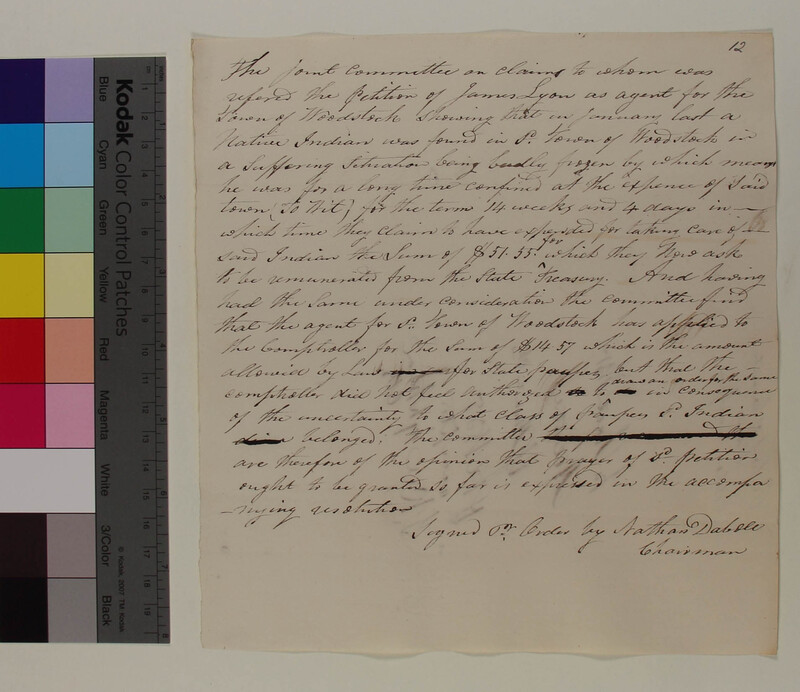 12
The Joint Committee on claims to whom was
refered the Petition of James Lyon as agent for the
Town of Woodstock Showing that in January last a
Native Indian was found in Sd. Town of Woodstock in
a Suffering Situation being badly frozen by which means
he was for a long time confined at the expence of Said
town (To Wit) for the term 14 weeks and 4 days in —
which time they claim to have expended for taking care of —
said Indian the Sum of $51.55. for which they Now ask
to be remunerated from the State Treasury. And having
had the Same under consideration the committee find
that the agent for Sd. Town of Woodstock has applied to
the Comptroller for the Sum of $14 57 which is the amount
allowed by Law for State paupers but that the —
comptroller did not feel authorized to draw an order for the Same in Consequence
of the uncertainty to what class of Paupers Sd. Indian
belonged. The Committee
are therefore of the opinion that prayer of Sd. Petition
ought to be granted So far is expressed in the accompa
-nying resolution
Signed Pr. Order by Nathan Daboll
Chairman
Kodak Color Control Patches
Blue
Cyan
Green
Yellow
Red
Magenta
White
3/Color
Black
© Kodak, 2007 TM: Kodak
1
2
3
4
5
6
7
8
9
10
11
12
13
14
15
16
17
18
19